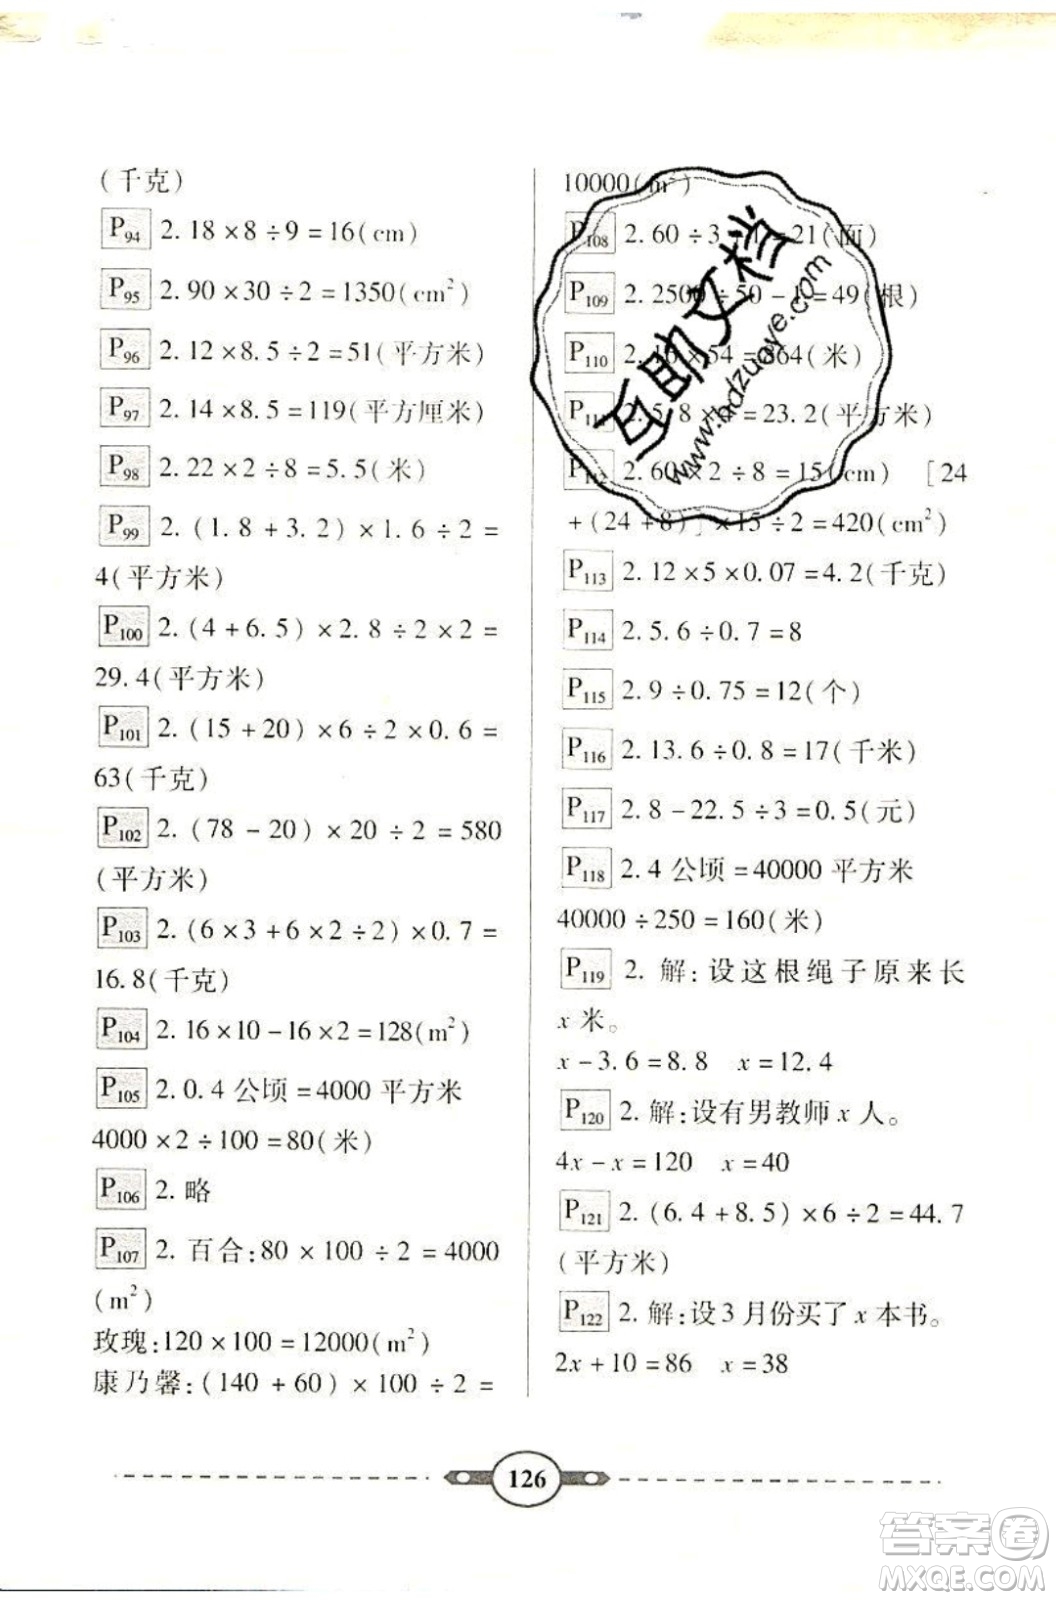 (千克)
P94 2. 18×8÷9=16(cm)
P95 2. 90×30÷2=1350(cm²)
P96 2. 12×8.5÷2=51(平方米)
P97 2. 14×8.5=119(平方厘米)
P98 2. 22×2÷8=5.5(米)
P99 2. (1.8+3.2)×1.6÷2=
4(平方米)
P100 2. (4+6.5)×2.8÷2×2=
29.4(平方米)
P101 2. (15+20)×6÷2×0.6=
63(千克)
P102 2. (78-20)×20÷2=580
(平方米)
P103 2. (6×3+6×2÷2)×0.7=
16.8(千克)
P104 2. 16×10-16×2=128(m²)
P105 2. 0.4公顷=4000平方米
4000×2÷100=80(米)
P106 2. 略
P107 2. 百合:80×100÷2=4000
(m²)
玫瑰:120×100=12000(m²)
康乃馨:(140+60)×100÷2=
10000(m²)
P108 2. 60÷3 =21(面)
P109 2. 2500÷50-1=49(根)
P110 2. 16×54=864(米)
2. 5.8× =23.2(平方米)
2. 60×2÷8=15(cm) [24
+(24+8)]×15÷2=420(cm²)
P113 2. 12×5×0.07=4.2(千克)
P114 2. 5.6÷0.7=8
P115 2. 9÷0.75=12(个)
P116 2. 13.6÷0.8=17(千米)
P117 2. 8-22.5÷3=0.5(元)
P118 2. 4公顷=40000平方米
40000÷250=160(米)
P119 2. 解:设这根绳子原来长
x米。
x-3.6=8.8 x=12.4
P120 2. 解:设有男教师x人。
4x-x=120 x=40
P121 2. (6.4+8.5)×6÷2=44.7
(平方米)
P122 2. 解:设3月份买了x本书。
2x+10=86 x=38
互助文档
www.hdzuoye.com
126
答案卷
MXQE.COM